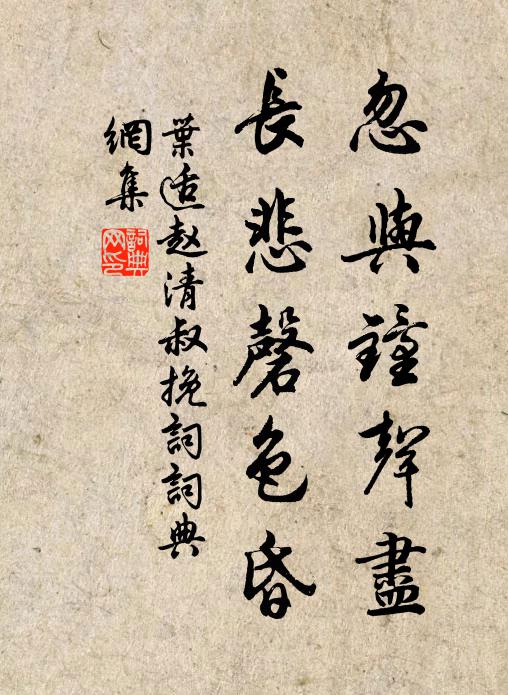 忽與鐘聲盡
長悲磬色昏
葉适赵清叔挽詞詞典
網集
詞典網印